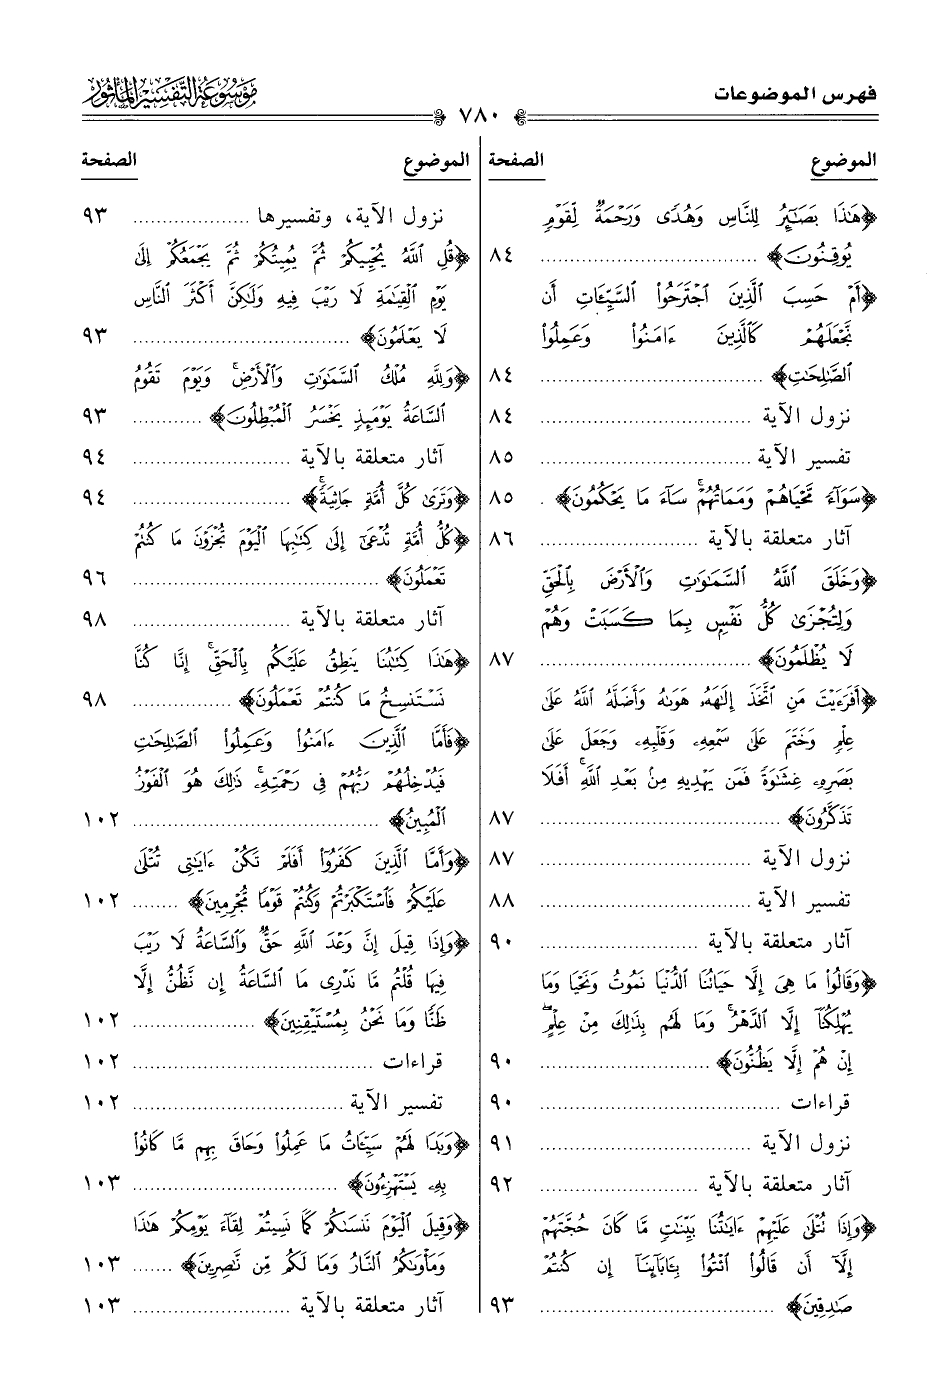 فهرس الموضوعات
موسوعة التفسير المأثور
٧٨٠
الموضوع الصفحة
﴿هَٰذَا بَصَٰٓئِرُ لِلنَّاسِ وَهُدًى وَرَحْمَةٌ لِّقَوْمٍ
يُوقِنُونَ﴾ ................................ ٨٤
﴿أَمْ حَسِبَ ٱلَّذِينَ ٱجْتَرَحُوا۟ ٱلسَّيِّـَٔاتِ أَن
نَّجْعَلَهُمْ كَٱلَّذِينَ ءَامَنُوا۟ وَعَمِلُوا۟
ٱلصَّٰلِحَٰتِ﴾ ................................ ٨٤
نزول الآية ................................ ٨٤
تفسير الآية ................................ ٨٥
﴿سَوَآءً مَّحْيَاهُمْ وَمَمَاتُهُمْ ۚ سَآءَ مَا يَحْكُمُونَ﴾ ٨٥
آثار متعلقة بالآية ........................ ٨٦
﴿وَخَلَقَ ٱللَّهُ ٱلسَّمَٰوَٰتِ وَٱلْأَرْضَ بِٱلْحَقِّ
وَلِتُجْزَىٰ كُلُّ نَفْسٍۭ بِمَا كَسَبَتْ وَهُمْ
لَا يُظْلَمُونَ﴾ ................................ ٨٧
﴿أَفَرَءَيْتَ مَنِ ٱتَّخَذَ إِلَٰهَهُۥ هَوَىٰهُ وَأَضَلَّهُ ٱللَّهُ عَلَىٰ
عِلْمٍ وَخَتَمَ عَلَىٰ سَمْعِهِۦ وَقَلْبِهِۦ وَجَعَلَ عَلَىٰ
بَصَرِهِۦ غِشَٰوَةً فَمَن يَهْدِيهِ مِنۢ بَعْدِ ٱللَّهِ ۚ أَفَلَا
تَذَكَّرُونَ﴾ ................................ ٨٧
نزول الآية ................................ ٨٧
تفسير الآية ................................ ٨٨
آثار متعلقة بالآية ........................ ٩٠
﴿وَقَالُوا۟ مَا هِىَ إِلَّا حَيَاتُنَا ٱلدُّنْيَا نَمُوتُ وَنَحْيَا وَمَا
يُهْلِكُنَآ إِلَّا ٱلدَّهْرُ ۚ وَمَا لَهُم بِذَٰلِكَ مِنْ عِلْمٍ ۖ
إِنْ هُمْ إِلَّا يَظُنُّونَ﴾ ........................ ٩٠
قراءات ................................ ٩٠
نزول الآية ................................ ٩١
آثار متعلقة بالآية ........................ ٩٢
﴿وَإِذَا تُتْلَىٰ عَلَيْهِمْ ءَايَٰتُنَا بَيِّنَٰتٍ مَّا كَانَ حُجَّتَهُمْ
إِلَّآ أَن قَالُوا۟ ٱئْتُوا۟ بِـَٔابَآئِنَآ إِن كُنتُمْ
صَٰدِقِينَ﴾ ................................ ٩٣
الموضوع الصفحة
نزول الآية، وتفسيرها .................... ٩٣
﴿قُلِ ٱللَّهُ يُحْيِيكُمْ ثُمَّ يُمِيتُكُمْ ثُمَّ يَجْمَعُكُمْ إِلَىٰ
يَوْمِ ٱلْقِيَٰمَةِ لَا رَيْبَ فِيهِ وَلَٰكِنَّ أَكْثَرَ ٱلنَّاسِ
لَا يَعْلَمُونَ﴾ ................................ ٩٣
﴿وَلِلَّهِ مُلْكُ ٱلسَّمَٰوَٰتِ وَٱلْأَرْضِ ۚ وَيَوْمَ تَقُومُ
ٱلسَّاعَةُ يَوْمَئِذٍ يَخْسَرُ ٱلْمُبْطِلُونَ﴾ ............ ٩٣
آثار متعلقة بالآية ........................ ٩٤
﴿وَتَرَىٰ كُلَّ أُمَّةٍ جَاثِيَةً ۚ﴾ .................... ٩٤
﴿كُلُّ أُمَّةٍ تُدْعَىٰٓ إِلَىٰ كِتَٰبِهَا ٱلْيَوْمَ تُجْزَوْنَ مَا كُنتُمْ
تَعْمَلُونَ﴾ ................................ ٩٦
آثار متعلقة بالآية ........................ ٩٨
﴿هَٰذَا كِتَٰبُنَا يَنطِقُ عَلَيْكُم بِٱلْحَقِّ ۚ إِنَّا كُنَّا
نَسْتَنسِخُ مَا كُنتُمْ تَعْمَلُونَ﴾ ................ ٩٨
﴿فَأَمَّا ٱلَّذِينَ ءَامَنُوا۟ وَعَمِلُوا۟ ٱلصَّٰلِحَٰتِ
فَيُدْخِلُهُمْ رَبُّهُمْ فِى رَحْمَتِهِۦ ۚ ذَٰلِكَ هُوَ ٱلْفَوْزُ
ٱلْمُبِينُ﴾ ................................ ١٠٢
﴿وَأَمَّا ٱلَّذِينَ كَفَرُوٓا۟ أَفَلَمْ تَكُنْ ءَايَٰتِى تُتْلَىٰ
عَلَيْكُمْ فَٱسْتَكْبَرْتُمْ وَكُنتُمْ قَوْمًا مُّجْرِمِينَ﴾ ........ ١٠٢
﴿وَإِذَا قِيلَ إِنَّ وَعْدَ ٱللَّهِ حَقٌّ وَٱلسَّاعَةُ لَا رَيْبَ
فِيهَا قُلْتُم مَّا نَدْرِى مَا ٱلسَّاعَةُ إِن نَّظُنُّ إِلَّا
ظَنًّا وَمَا نَحْنُ بِمُسْتَيْقِنِينَ﴾ .................... ١٠٢
قراءات ................................ ١٠٢
تفسير الآية ................................ ١٠٢
﴿وَبَدَا لَهُمْ سَيِّـَٔاتُ مَا عَمِلُوا۟ وَحَاقَ بِهِم مَّا كَانُوا۟
بِهِۦ يَسْتَهْزِءُونَ﴾ ............................ ١٠٣
﴿وَقِيلَ ٱلْيَوْمَ نَنسَىٰكُمْ كَمَا نَسِيتُمْ لِقَآءَ يَوْمِكُمْ هَٰذَا
وَمَأْوَىٰكُمُ ٱلنَّارُ وَمَا لَكُم مِّن نَّٰصِرِينَ﴾ ....... ١٠٣
آثار متعلقة بالآية ........................ ١٠٣